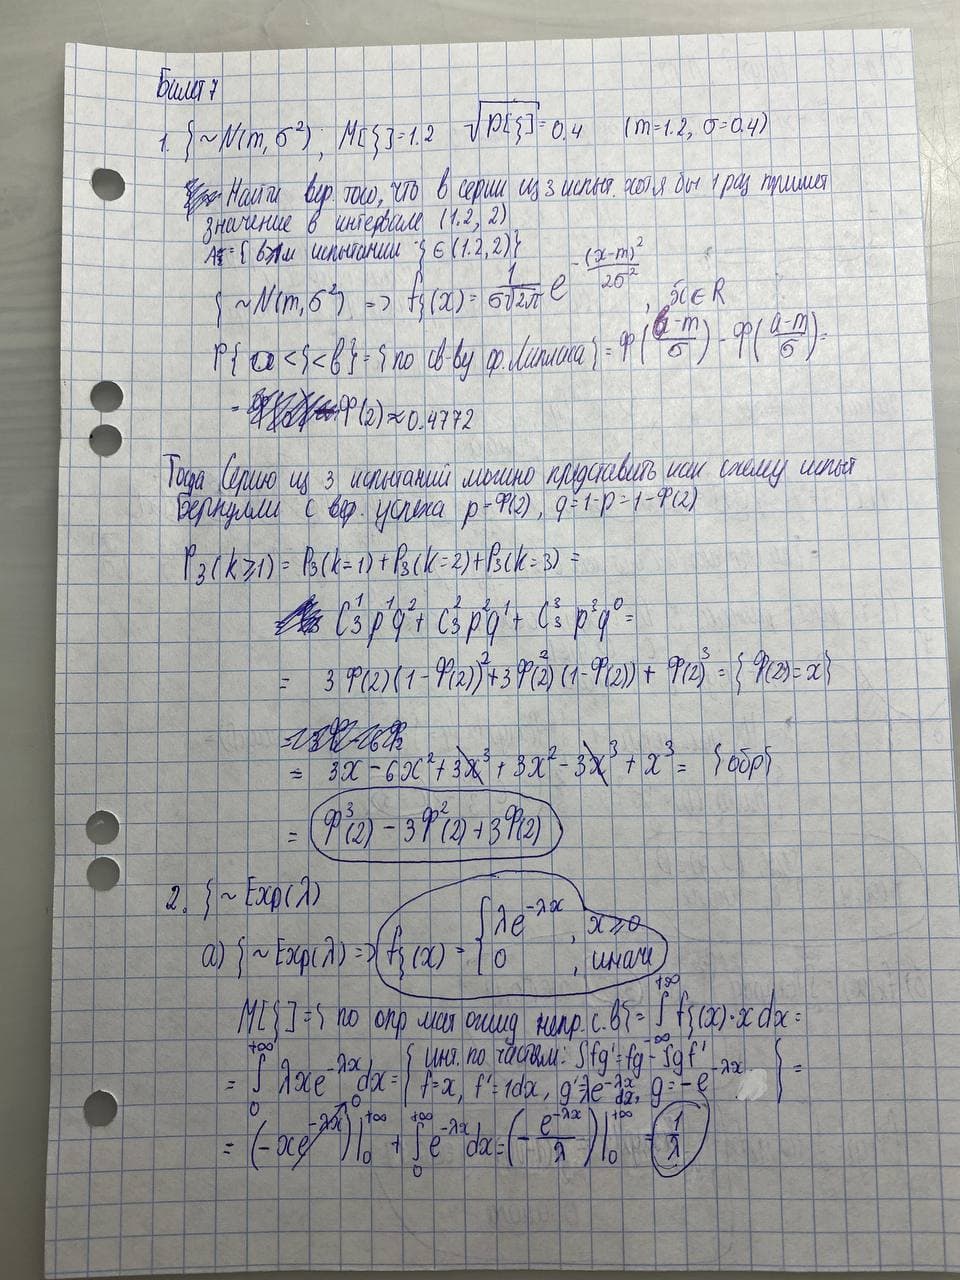 Билет 7
1. ξ ~ N(m, σ²), M[ξ] = 1.2 √D[ξ] = 0.4 (m = 1.2, σ = 0.4)
Найти вер. того, что в серии из 3 испыт. хотя бы 1 раз примет
значение в интервале (1.2, 2)
испытании ξ ∈ (1.2, 2)}
ξ ~ N(m, σ²) => fξ(x) = 1/(σ√2π) e^(-(x-m)²/2σ²), x ∈ R
P{a < ξ < b} = {по св-ву ф. Лапласа} = Ф((b-m)/σ) - Ф((a-m)/σ) =
= Ф(2) ≈ 0.4772
Тогда серию из 3 испытаний можно представить как схему испыт
Бернулли с вер. успеха p = Ф(2), q = 1 - p = 1 - Ф(2)
P₃(k ≥ 1) = P₃(k = 1) + P₃(k = 2) + P₃(k = 3) =
C₃¹p¹q² + C₃²p²q¹ + C₃³p³q⁰ =
= 3Ф(2)(1 - Ф(2))² + 3Ф²(2)(1 - Ф(2)) + Ф(2)³ = {Ф(2) = x}
= 3x - 6x² + 3x³ + 3x² - 3x³ + x³ = {обр}
= Ф³(2) - 3Ф²(2) + 3Ф(2)
2. ξ ~ Exp(λ)
а) ξ ~ Exp(λ) => fξ(x) = { λe^(-λx), x ≥ 0
0, иначе
M[ξ] = {по опр мат ожид непр. с.в} = ∫_{-∞}^{+∞} fξ(x)·x dx =
= ∫₀^{+∞} λxe^(-λx) dx = {инт. по частям: ∫fg' = fg - ∫gf'
f = x, f' = 1dx, g' = λe^(-λx) dx, g = -e^(-λx)} =
= (-xe^(-λx))|₀^{+∞} + ∫₀^{+∞} e^(-λx) dx = (-e^(-λx)/λ)|₀^{+∞} = 1/λ